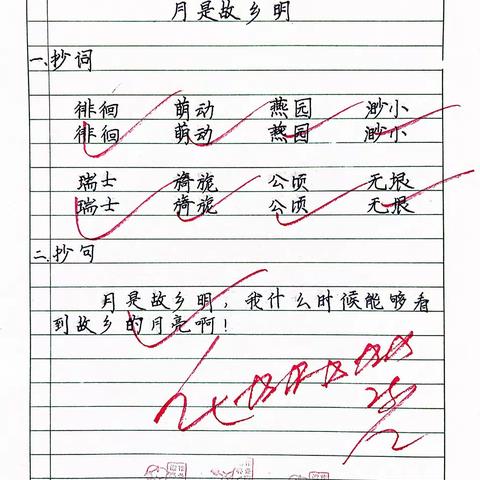 月是故乡明
一.抄词
徘徊 萌动 燕园 渺小
徘徊 萌动 燕园 渺小
瑞士 旖旎 公顷 无垠
瑞士 旖旎 公顷 无垠
二.抄句
月是故乡明，我什么时候能够看
到故乡的月亮啊！